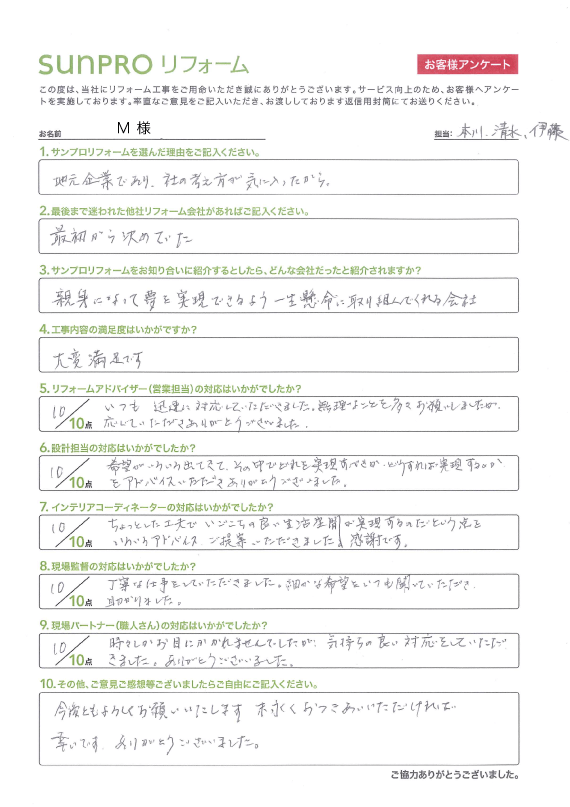 sunpro リフォーム
お客様アンケート
この度は、当社にリフォーム工事をご用命いただき誠にありがとうございます。サービス向上のため、お客様へアンケー
トを実施しております。率直なご意見をご記入いただき、お渡ししております返信用封筒にてお送りください。
お名前 M 様 担当: 本川、清水、伊藤
1. サンプロリフォームを選んだ理由をご記入ください。
地元企業であり、社の考え方が気に入ったから。
2. 最後まで迷われた他社リフォーム会社があればご記入ください。
最初から決めていた
3. サンプロリフォームをお知り合いに紹介するとしたら、どんな会社だったと紹介されますか?
親身になって夢を実現できるよう一生懸命に取り組んでくれる会社
4. 工事内容の満足度はいかがですか?
大変満足です
5. リフォームアドバイザー(営業担当)の対応はいかがでしたか?
10/10点 いつも 迅速に対応していただきました。無理なことを多々お願いしましたが、
応じていただきありがとうございました。
6. 設計担当の対応はいかがでしたか?
10/10点 希望がいろいろ出てきて、その中でどれを実現すべきか、どうすれば実現するのか
をアドバイスいただきありがとうございました。
7. インテリアコーディネーターの対応はいかがでしたか?
10/10点 ちょっとした工夫でいごこちの良い生活空間が実現するのだという点を
いろいろアドバイス ご提案いただきました。感謝です。
8. 現場監督の対応はいかがでしたか?
10/10点 丁寧な仕事をしていただきました。細かな希望をいつも聞いていただき、
助かりました。
9. 現場パートナー(職人さん)の対応はいかがでしたか?
10/10点 時々しかお目にかかれませんでしたが、気持ちの良い対応をしていただ
きました。ありがとうございました。
10. その他、ご意見ご感想等ございましたらご自由にご記入ください。
今後ともよろしくお願いいたします 末永くおつきあいいただければ
幸いです。ありがとうございました。
ご協力ありがとうございました。